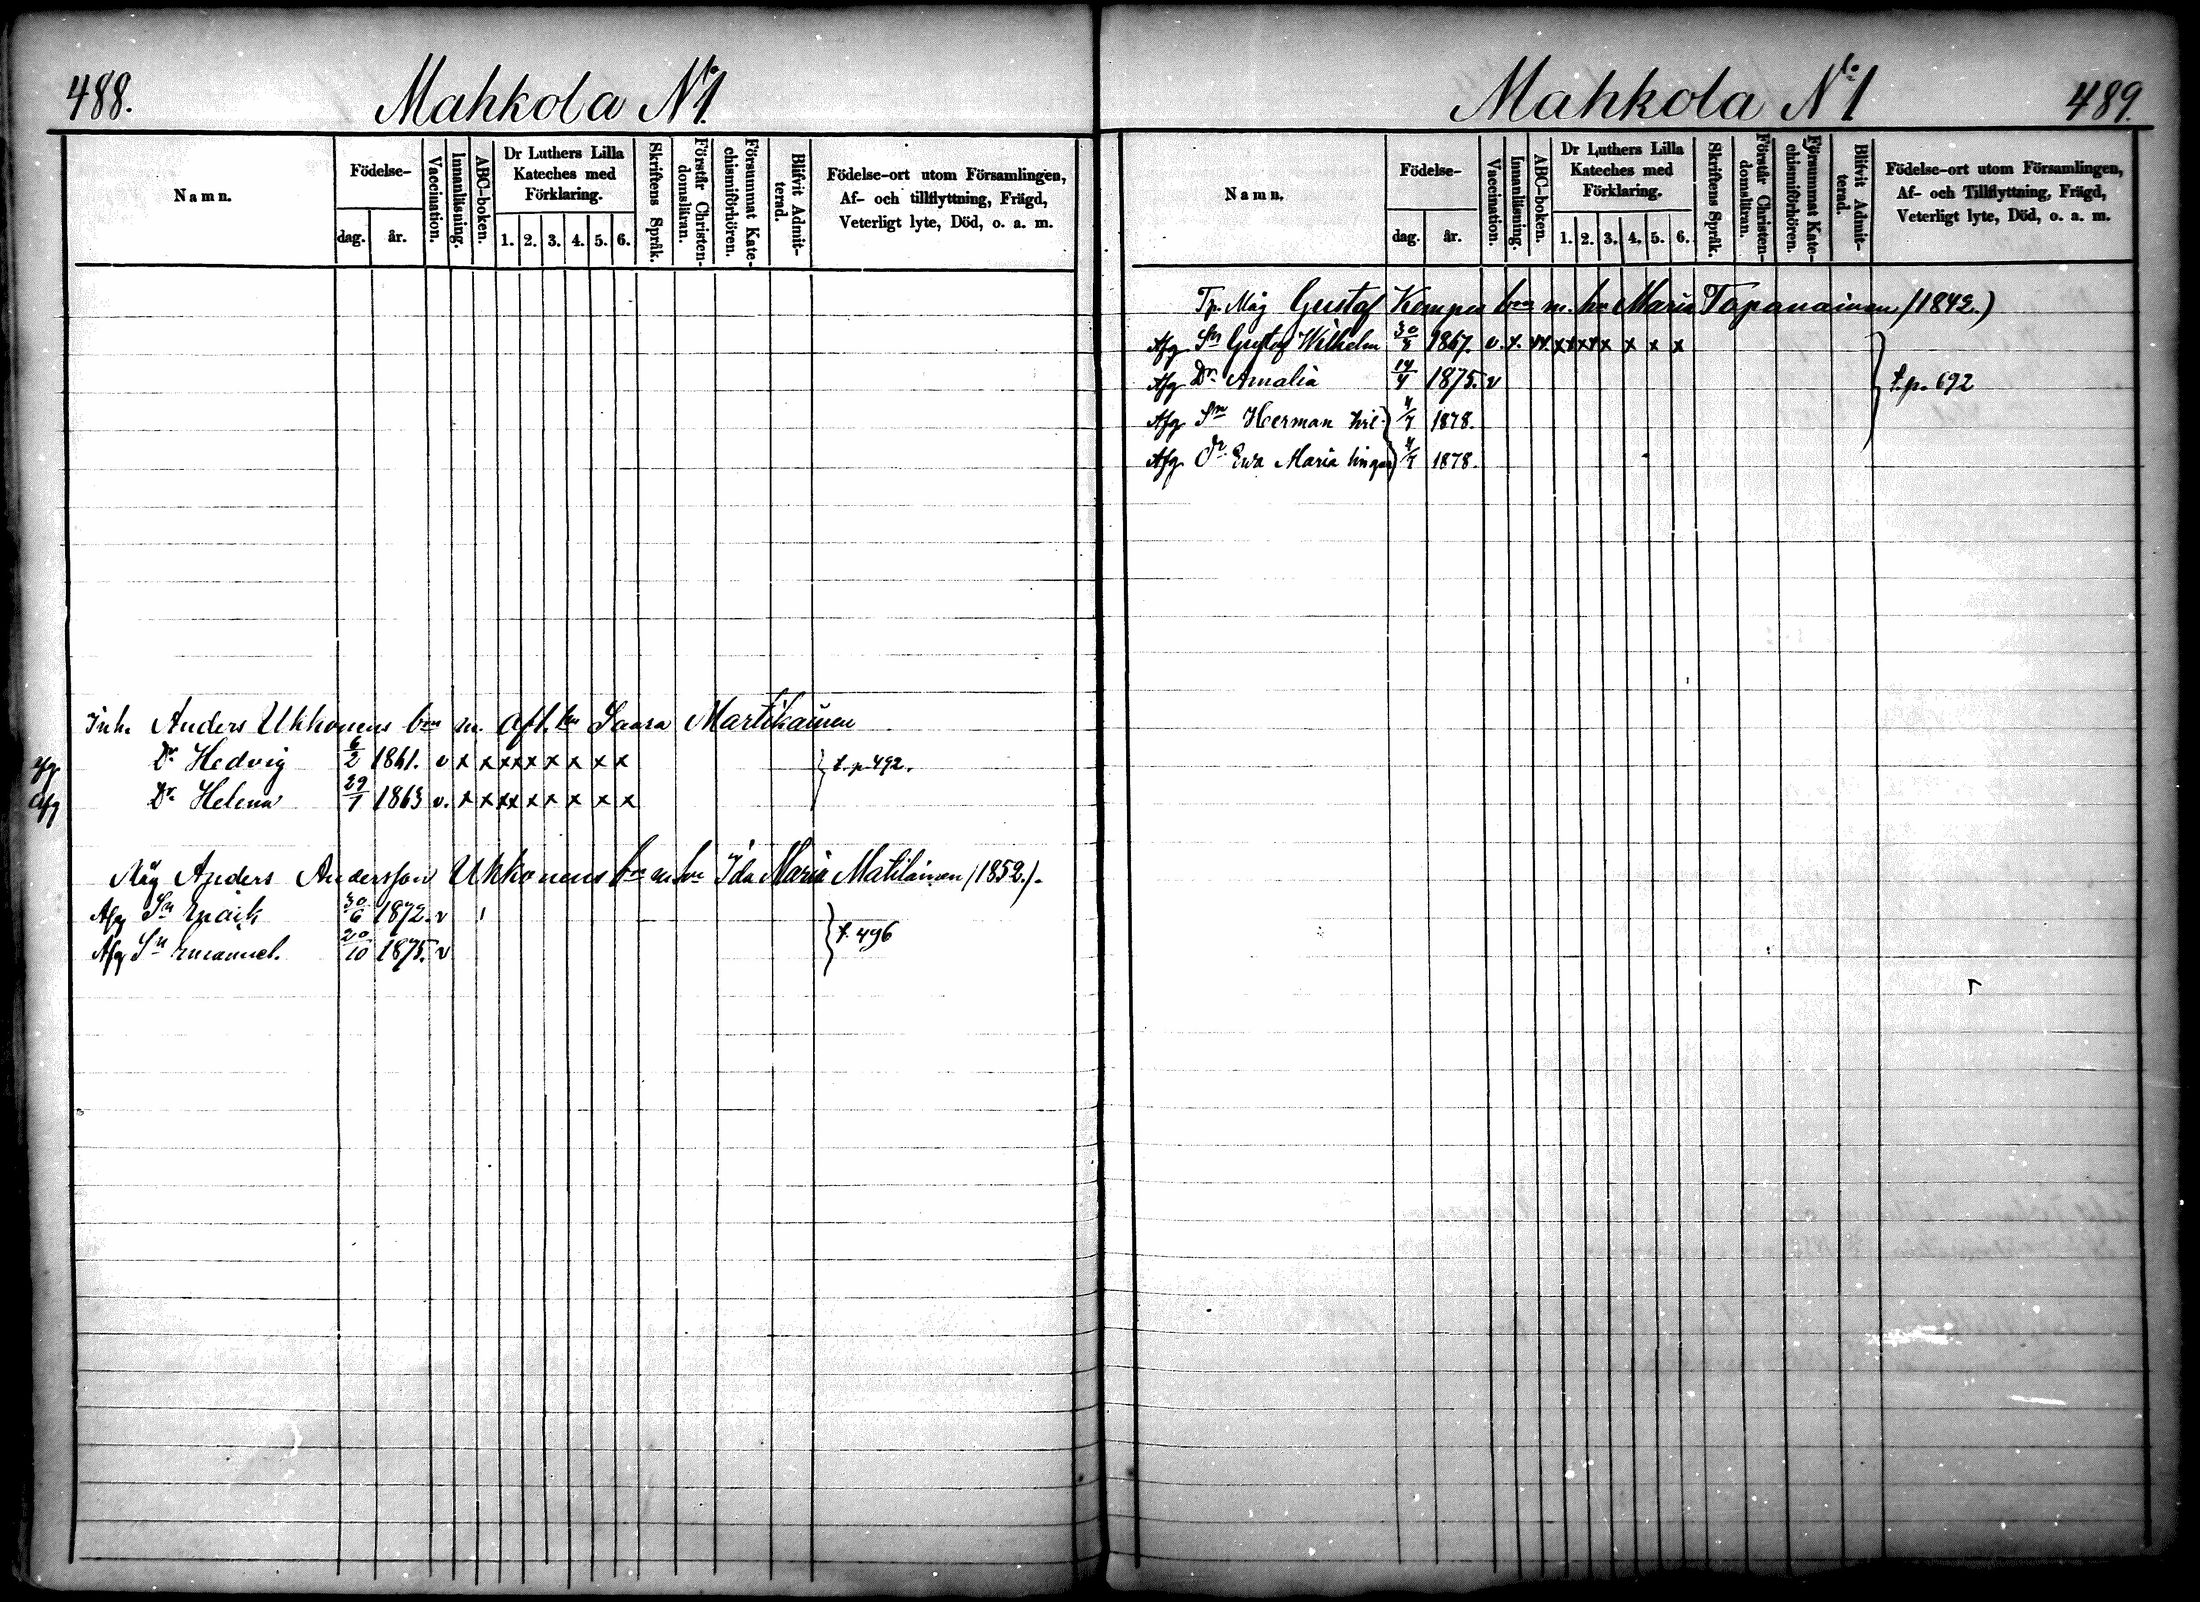 488.
Mahkola No 1.
Namn.
Födelse-
dag. år.
Vaccination.
Innanläsning.
ABC-boken.
Dr Luthers Lilla
Kateches med
Förklaring.
1. 2. 3. 4. 5. 6.
Skriftens Språk.
Förstår Christen-
domsläran.
Försummat Kate-
chismiförhören.
Blifvit Admit-
terad.
Födelse-ort utom Församlingen,
Af- och tillflyttning, Frägd,
Veterligt lyte, Död, o. a. m.
Inh. Anders Ukkonens bn m. afl. hu Saara Martikainen
Afg Dr Hedvig 6/2 1861. v x x xx x x x x x t. p. 492.
Afg Dr Helena 29/1 1863 v. x x xx x x x x x
Måg Anders Andersson Ukkonens bn m. hu Ida Maria Matilainen (1852.).
Afg Sn Isaik 30/6 1872. v
Afg Sn Emanuel. 20/10 1875. v
t. 496
Mahkola No 1
489.
Namn.
Födelse-
dag. år.
Vaccination.
Innanläsning.
ABC-boken.
Dr Luthers Lilla
Kateches med
Förklaring.
1. 2. 3. 4. 5. 6.
Skriftens Språk.
Förstår Christen-
domsläran.
Försummat Kate-
chismiförhören.
Blifvit Admit-
terad.
Födelse-ort utom Församlingen,
Af- och Tillflyttning, Frägd,
Veterligt lyte, Död, o. a. m.
Tp. Måg Gustaf Kempes bn m. hu Maria Tapanainen (1842.)
Afg Sn Gustaf Wilhelm 30/8 1867. v. x. xx. x x x x x x x x
Afg Dr Amalia 14/4 1875. v t. p. 692
Afg Sn Herman 4/7 1878.
Afg Dr Ewa Maria 4/7 1878.